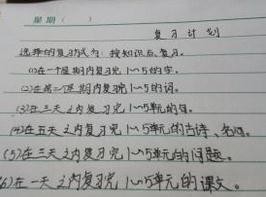 星期（ ）
复习计划
选择的复习方式为：按知识点复习。
(1)在一个星期内复习完1~5的字。
(2)在第二星期内复习完1~5的词。
(3)在三天之内复习完1~5单元的句。
(4)在五天之内复习完1~5单元的古诗、名句。
(5)在三天之内复习完1~5单元的问题。
(6)在一天之内复习完1~5单元的课文。